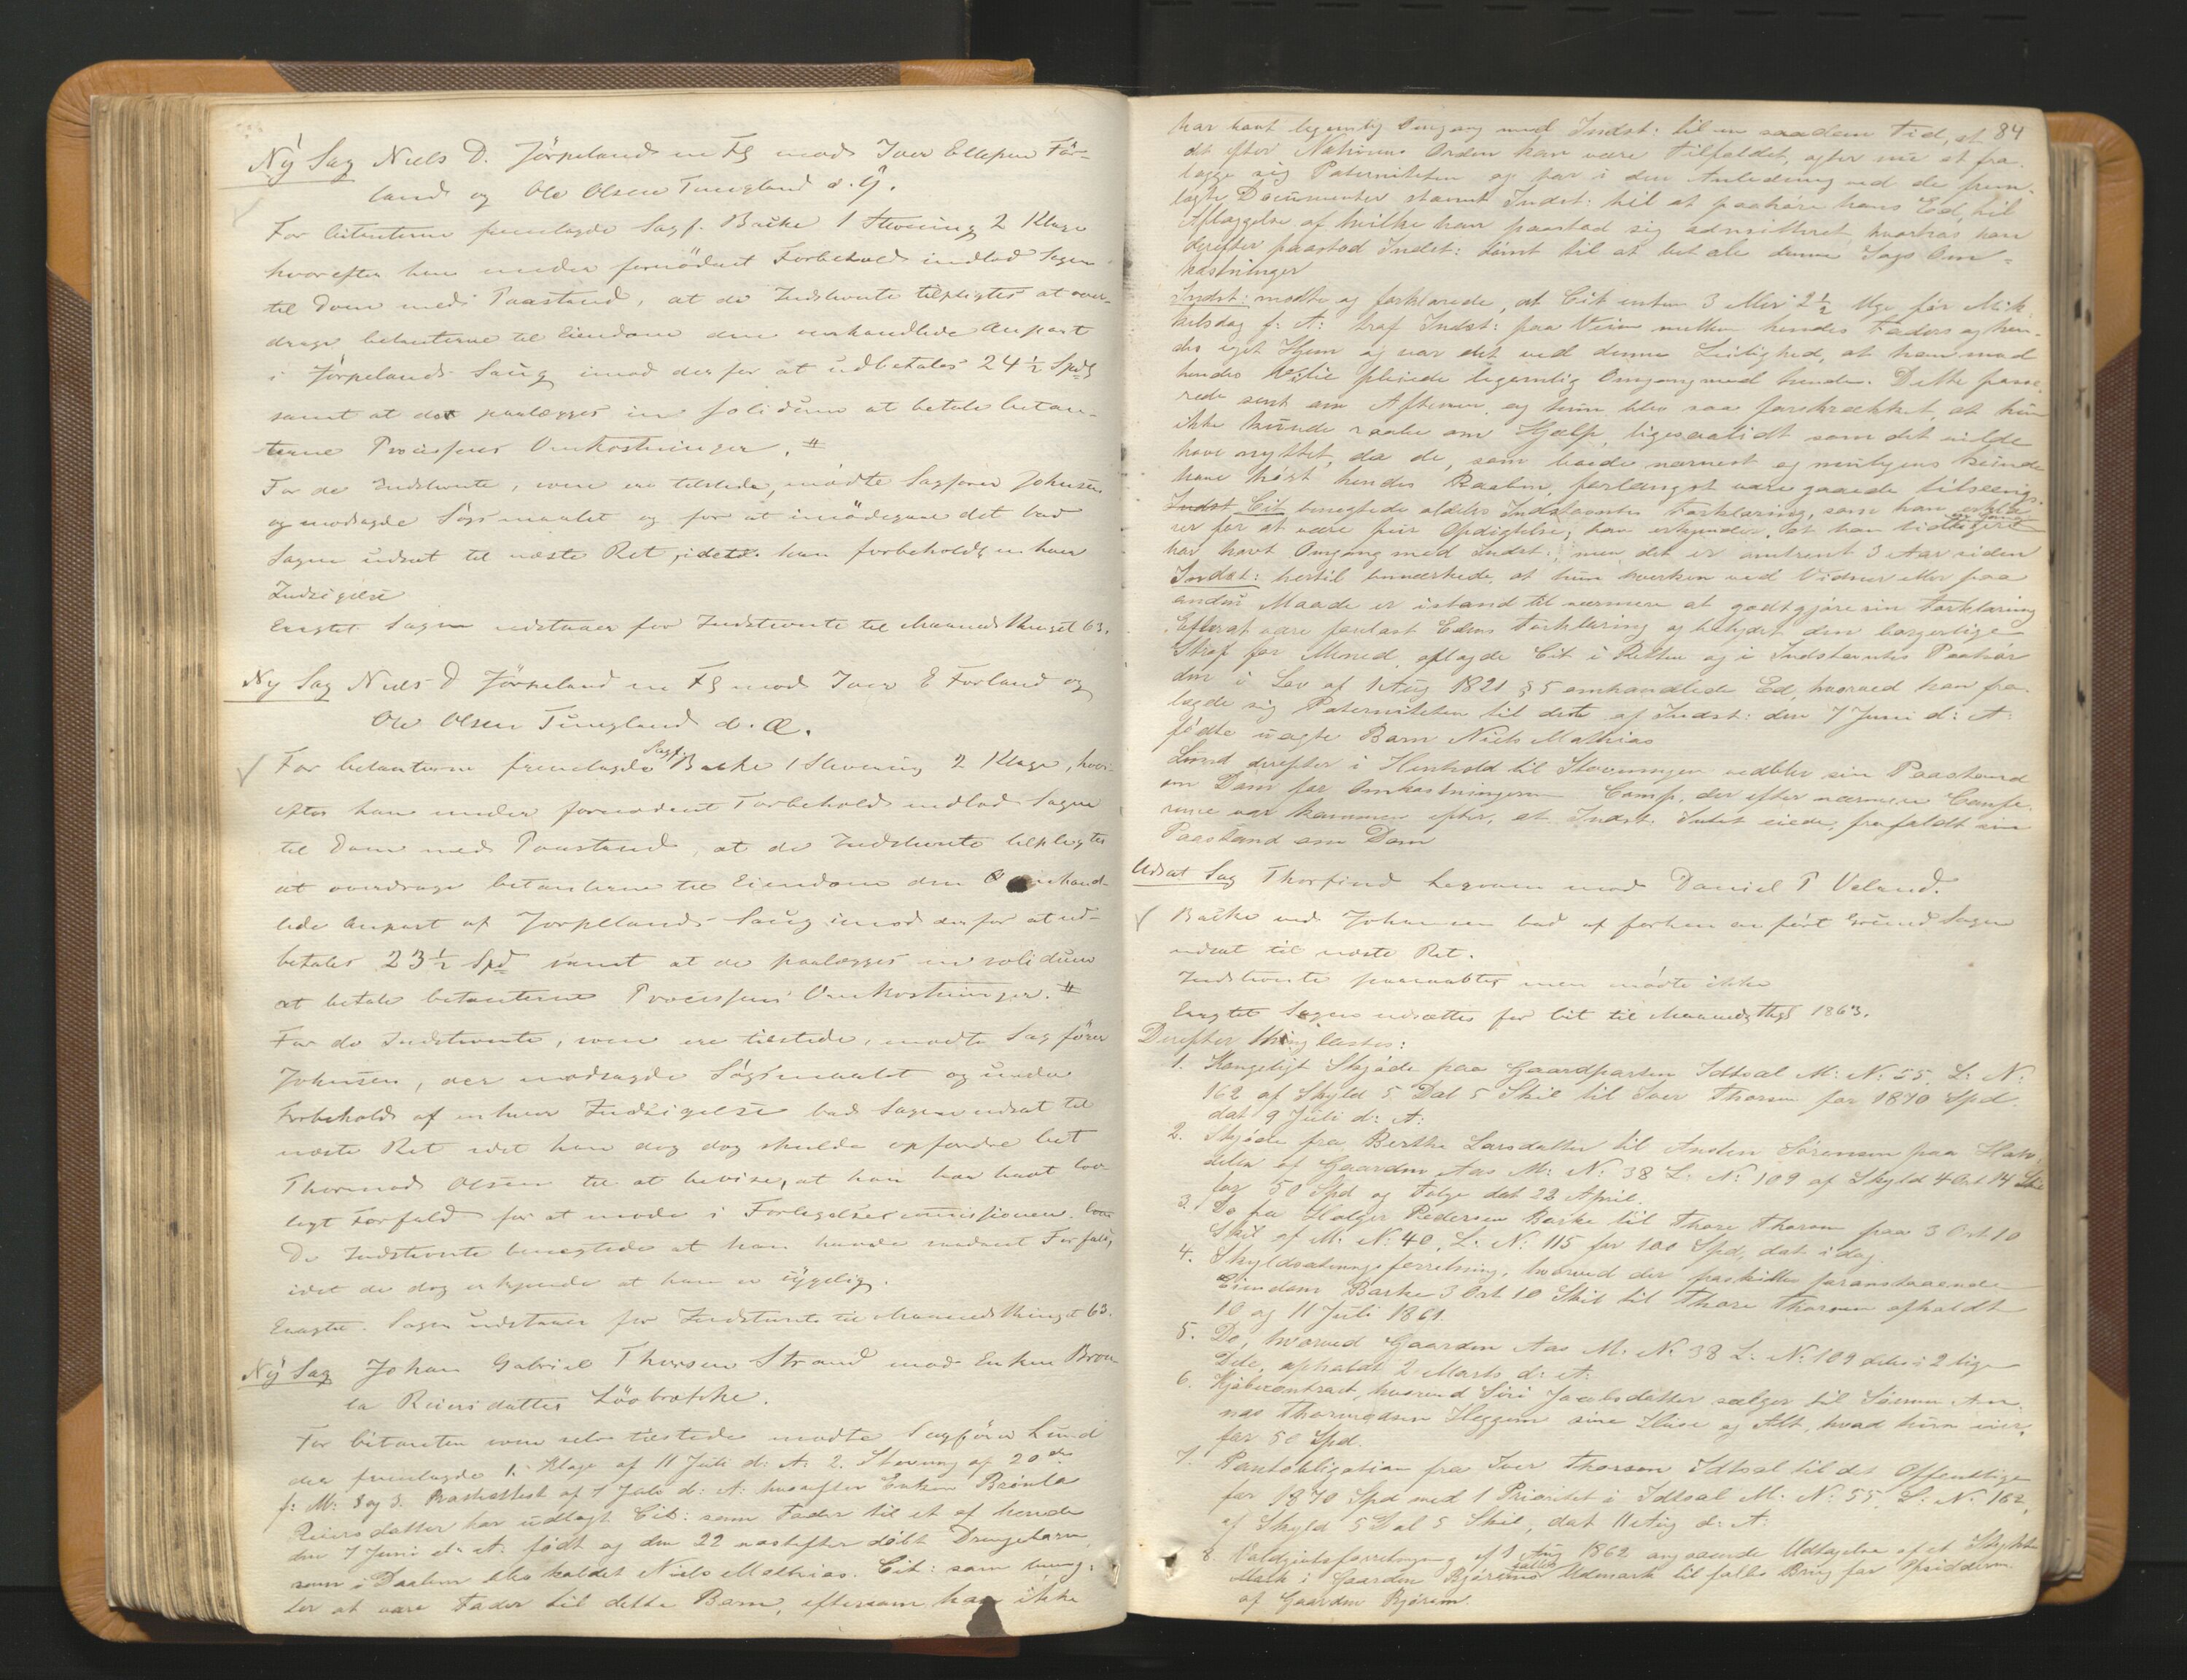 Ny Sag Niels D. Jörpeland en Fl mod Iver Ellefsen För-
land og Ole Olsen Tungland d. Y.
For Citanterne fremlagde Sagf. Bache 1 Stevning 2 Klage
hvorefter han under fornödent Forbehold indlod Sagen
til Dom med Paastand, at de Indstevnte tilpligtes at over-
drage Citanterne til Eiendom den omhandlede Anpart
i Jörpelands Saug imod derfor at udbetales 24 1/2 Spd
samt at det paalægges in solidum at betale Citan-
terne Processens Omkostninger. #
For de Indstevnte, som ere tilstede, mödte Sagförer Johnsen
og modsagde Sögsmaalet og for at imödegaae det bad
Sagen udsat til næste Ret, idet han forbeholdt enhver
Indsigelse
Eragtet Sagen udstaaer for Indstevnte til Maanedsthinget 63.
Ny Sag Niels D Jörpeland en Fl mod Iver E Forland og
Ole Olsen Tungland d. Æ.
For Citanterne fremlagde Sagf. Bache 1 Stevning 2 Klage, hvor-
efter han under fornødent Forbehold indlod Sagen
til Dom med Paastand, at de Indstevnte tilpligtes
at overdrage Citanterne til Eiendom den omhand-
lede Anpart af Jorpelands Saug imod derfor at ud-
betales 23 1/2 Spd samt at de paalægges in solidum
at betale Citanterne Processens Omkostninger. #
For de Indstevnte, som ere tilstede, mødte Sagförer
Johnsen, der modsagde Sögsmaalet og under
Forbehold af enhver Indsigelse bad Sagen udsat til
næste Ret idet han dog dog skulde opfordre Cit
Thormod Olsen til at bevise, at han har havt lov-
ligt Forfald for at møde i Forligelsescommissionen.
De Indstevnte benegtede at han havde saadant Forfald,
idet de dog erkjende at han er sygelig.
Eragtet. Sagen udstaaer for Indstevnte til Maanedsthinget 63.
Ny Sag Johan Gabriel Thorsen Strand mod Enken Brön
la Reiersdatter Löobrække.
For Citanten som selv tilstede mødte Sagfører Lund
der fremlagde 1. Klage af 11 Juli d: A: 2. Stevning af 20de
f: M: 8 og 3. Præsteattest af 7 Jule d: A: hvorefter Enken Brönla
Reiersdatter har udlagt Cit: som Fader til et af hende
den 7 Juni d: A: født og den 22 næstefter döbt Drengebarn
som i Daaben blev kaldet Niels Mathias. Cit: som næg-
ter at være Fader til dette Barn, eftersom han ikke
84
har havt legemlig Omgang med Indst: til en saadan Tid, at
det efter Naturens Orden kan være Tilfældet, agter nu at fra-
lægge sig Paterniteten og har i den Anledning ved de frem-
lagte Documenter stævnt Indst: til at paahøre hans Ed, til
Aflæggelse af hvilke han paastod sig admitteret, hvorhos han
derefter paastod Indst: dömt til at betale denne Sags Om-
kostninger
Indst: mødte og forklarede, at Cit enten 3 eller 2 1/2 Uge för Mik-
kelsdag f: A: traf Indst: paa Veien mellem hendes Faders og hen-
des eget Hjem og var det ved denne Leilighed, at han mod
hendes Vilie pleiede legemlig Omgang med hende. Dette passe-
rede sent om Aftenen og hun blev saa forskrækket, at hun
ikke kunde raabe om Hjælp, ligesaalidt som det vilde
have nyttet, da de, som boede nærmest og muligens kunde
have hört hendes Raaben, forlængst vare gaaede tilsengs.
Indst Cit benegtede aldeles Indstevntes Forklaring, som han erklæ-
rer for at være pur Opdigtelse; han erkjender, at han tidligere en Gang
har havt Omgang med Indst:, men det er omtrent 3 Aar siden
Indst: hertil bemærkede, at hun hverken ved Vidner eller paa
anden Maade er istand til nærmere at godtgjøre sin Forklaring
Efterat være forelæst Edens Forklaring og betydet den borgerlige
Straf for Meened, aflagde Cit i Retten og i Indstævntes Paahör
den i Lov af 1 Aug 1821 § 5 omhandlede Ed, hvorved han fra-
lagde sig Paterniteten til dette af Indst: den 7 Juni d: A:
födte uægte Barn Niels Mathias
Lund derefter i Henhold til Stævningen vedblev sin Paastand
om Dom for Omkostningerne Comp. der efter nærmere Confe-
rence var kommen efter, at Indst. Intet eiede, frafaldt sin
Paastand om Dom
Udsat Sag Thorfind Legvam mod Daniel P Veland.
Bache ved Johnsen bad af forhen anført Grund Sagen
udsat til næste Ret.
Indstevnte paaraabtes men mödte ikke
Eragtet Sagen udsættes for Cit til Maanedsthgt 1863.
Derefter thinglæstes:
1. Kongeligt Skjöde paa Gaardparten Idtsal M: N: 55. L: N:
162 af Skyld 5 Dal 5 Skil til Iver Thorsen for 1870 Spd
dat 9 Juli d: A:
2. Skjöde fra Berthe Larsdatter til Anders Sørensen paa Halv-
delen af Gaarden Aas M: N: 38 L: N: 109 af Skyld 4 Ort 14 Sk
for 50 Spd og Følge dat 23 April.
3. Do fra Holger Pedersen Barke til Thore Thorsen paa 3 Ort 10
Skil af M: N: 40, L: N: 115 for 100 Spd, dat idag
4. Skyldsætningsforretning, hvorved der fraskilles foranstaaende
Eiendom Barke 3 Ort 10 Skil til Thore Thorsen afholdt
10 og 11 Juli 1861.
5. Do, hvorved Gaarden Aas M: N: 38 L: N: 109 deles i 2 lige
Dele, afholdt 2 Marts d: A:
6. Kjöbecontract, hvorved Siri Jacobsdatter sælger til Simon An-
nas Thormodsen Heggem sine Huse og Alt, hvad hun eier,
for 50 Spd.
7. Pantobligation fra Iver Thorsen Idtsal til det Offentlige
for 1870 Spd med 1 Prioritet i Idtsal M. N: 55. L: N. 162,
af Skyld 5 Dal 5 Skil, dat 11 Aug d: A:
8. Valdgiftsforretning af 1 Aug 1862 angaaende Udtagelse af et Stykke
Mark i Gaarden Bjørems fælles Udmark til fælles Brug for Opsidderne
af Gaarden Bjørem.